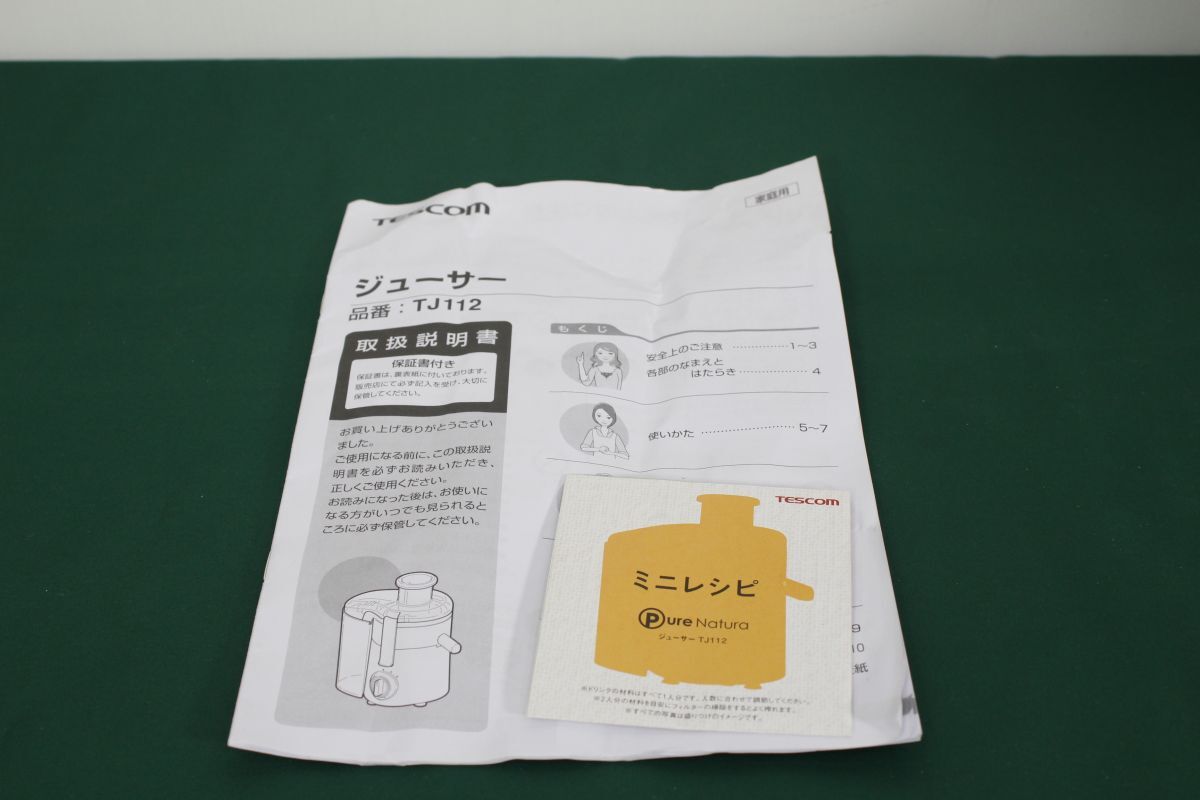 TESCOM
家庭用
ジューサー
品番：TJ112
取扱説明書
保証書付き
保証書は、裏表紙に付いております。
販売店にて必ず記入を受け、大切に
保管してください。
お買い上げありがとうござい
ました。
ご使用になる前に、この取扱説
明書を必ずお読みいただき、
正しくご使用ください。
お読みになった後は、お使いに
なる方がいつでも見られると
ころに必ず保管してください。
もくじ
安全上のご注意 ……………1～3
各部のなまえと
はたらき ……………… 4
使いかた ……………………5～7
9
10
紙
TESCOM
ミニレシピ
Pure Natura
ジューサー TJ112
※ドリンクの材料はすべて1人分です。人数に合わせて調節してください。
※2人分の材料を目安にフィルターの掃除をするとよく搾れます。
※すべての写真は盛りつけのイメージです。